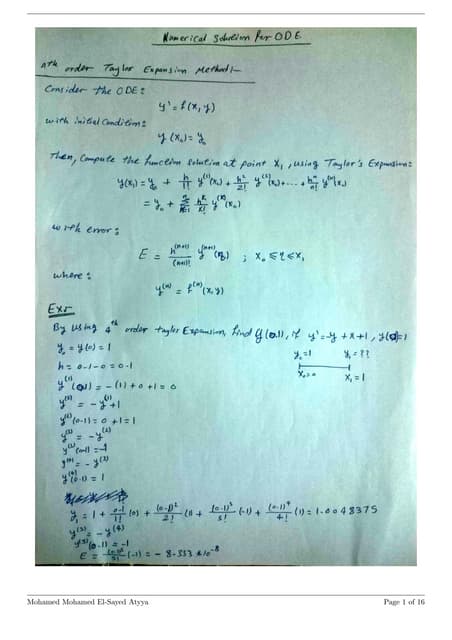 Numerical Solution for ODE
nth order Taylor Expansion Method:-
Consider the ODE:
y' = f(x, y)
with initial Condition:
y(x₀) = y₀
Then, Compute the function solution at point x₁, using Taylor's Expansion:
y(x₁) = y₀ + h/1! y⁽¹⁾(x₀) + h²/2! y⁽²⁾(x₀) + .... + hⁿ/n! y⁽ⁿ⁾(x₀)
= y₀ + Σ hᴷ/K! y⁽ᴷ⁾(x₀)
with error:
E = h⁽ⁿ⁺¹⁾/(n+1)! y⁽ⁿ⁺¹⁾(η) ; x₀ ≤ η ≤ x₁
where:
y⁽ⁿ⁾ = f⁽ⁿ⁾(x, y)
Ex:-
By using 4th order taylor Expansion, find y(0.1), if y' = -y + x + 1, y(0)=1
y₀ = y(0) = 1
y₀=1 y₁ = ??
h = 0.1 - 0 = 0.1
x₀=0 x₁ = 1
y⁽¹⁾(0.1) = -(1) + 0 + 1 = 0
y⁽²⁾ = -y⁽¹⁾ + 1
y⁽²⁾(0.1) = 0 + 1 = 1
y⁽³⁾ = -y⁽²⁾
y⁽³⁾(0.1) = -1
y⁽⁴⁾ = -y⁽³⁾
y⁽⁴⁾(0.1) = 1
y₁ = 1 + 0.1/1! (0) + (0.1)²/2! (1) + (0.1)³/3! (-1) + (0.1)⁴/4! (1) = 1.0048375
y⁽⁵⁾ = -y⁽⁴⁾
y⁽⁵⁾(0.1) = -1
E = (0.1)⁵/5! (-1) = -8.333 *10⁻⁸
Mohamed Mohamed El-Sayed Atyya Page 1 of 16